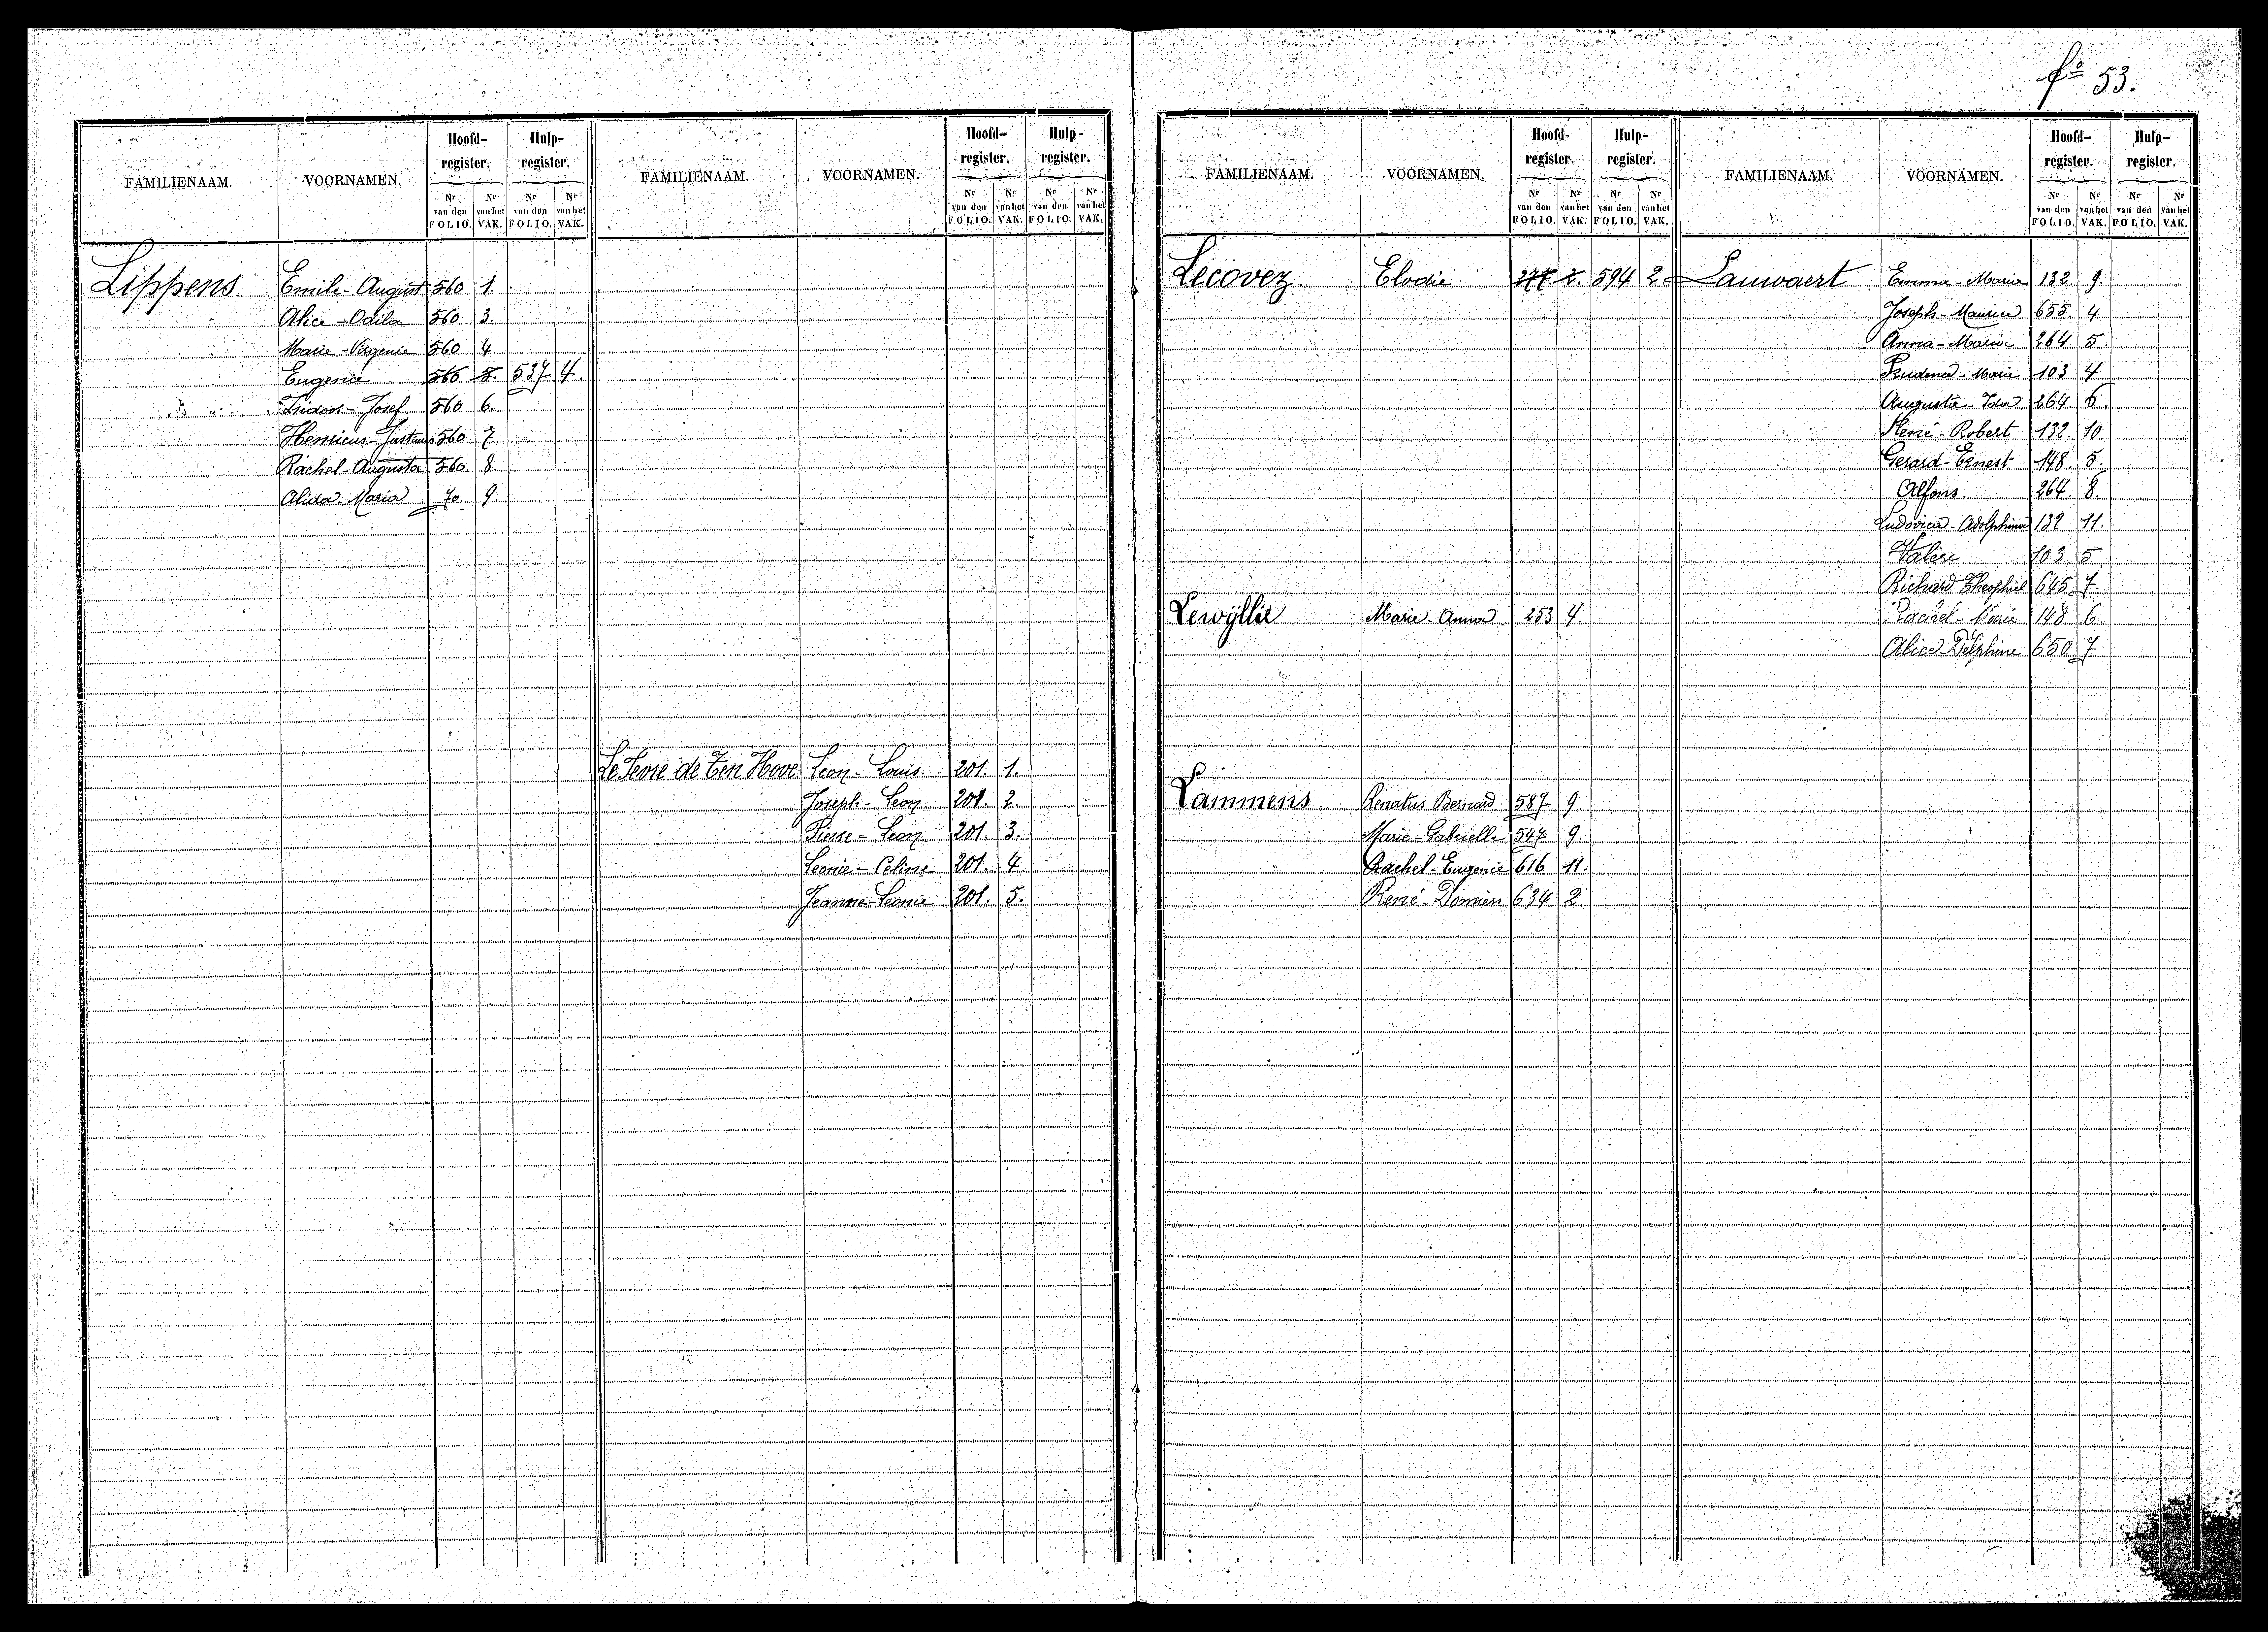 fº 53.
FAMILIENAAM. VOORNAMEN. Hoofd-register. Hulp-register.
Nr van den FOLIO. Nr van het VAK. Nr van den FOLIO. Nr van het VAK.
Lippens Emile-August 560 1.
Alice-Odila 560 3.
Marie-Virgenie 560 4.
Eugenie 560 5. 537 4.
Isidoor-Josef 560 6.
Henricus-Justinus 560 7.
Rachel-Augusta 560 8.
Alicia-Maria 70. 9.
FAMILIENAAM. VOORNAMEN. Hoofd-register. Hulp-register.
Nr van den FOLIO. Nr van het VAK. Nr van den FOLIO. Nr van het VAK.
Le Fevre de Ten Hove Leon-Louis. 201. 1.
Joseph-Leon 201. 2.
Pierre-Leon 201. 3.
Leonie-Celine 201. 4.
Jeanne-Leonie 201. 5.
FAMILIENAAM. VOORNAMEN. Hoofd-register. Hulp-register.
Nr van den FOLIO. Nr van het VAK. Nr van den FOLIO. Nr van het VAK.
Lecovez. Elodie 277 2. 594 2
Lewÿllie Marie-Anna 253 4.
Lammens Renatus Bernard 587 9.
Marie-Gabrielle 547 9.
Rachel-Eugenie 616 11.
René-Domien 634 2.
FAMILIENAAM. VOORNAMEN. Hoofd-register. Hulp-register.
Nr van den FOLIO. Nr van het VAK. Nr van den FOLIO. Nr van het VAK.
Lauwaert Emma-Maria 132. 9.
Joseph-Maurice 655. 4.
Anna-Maria 264 5
Prudence-Marie 103 4
Augusta-Ida 264 6.
René-Robert 132. 10
Gerard-Ernest 148. 5.
Alfons. 264. 8.
Ludovica-Adolphina 132 11.
Valère 103 5.
Richard Theophiel 645 7.
Rachel-Marie 148 6.
Alice-Delphine 650 7